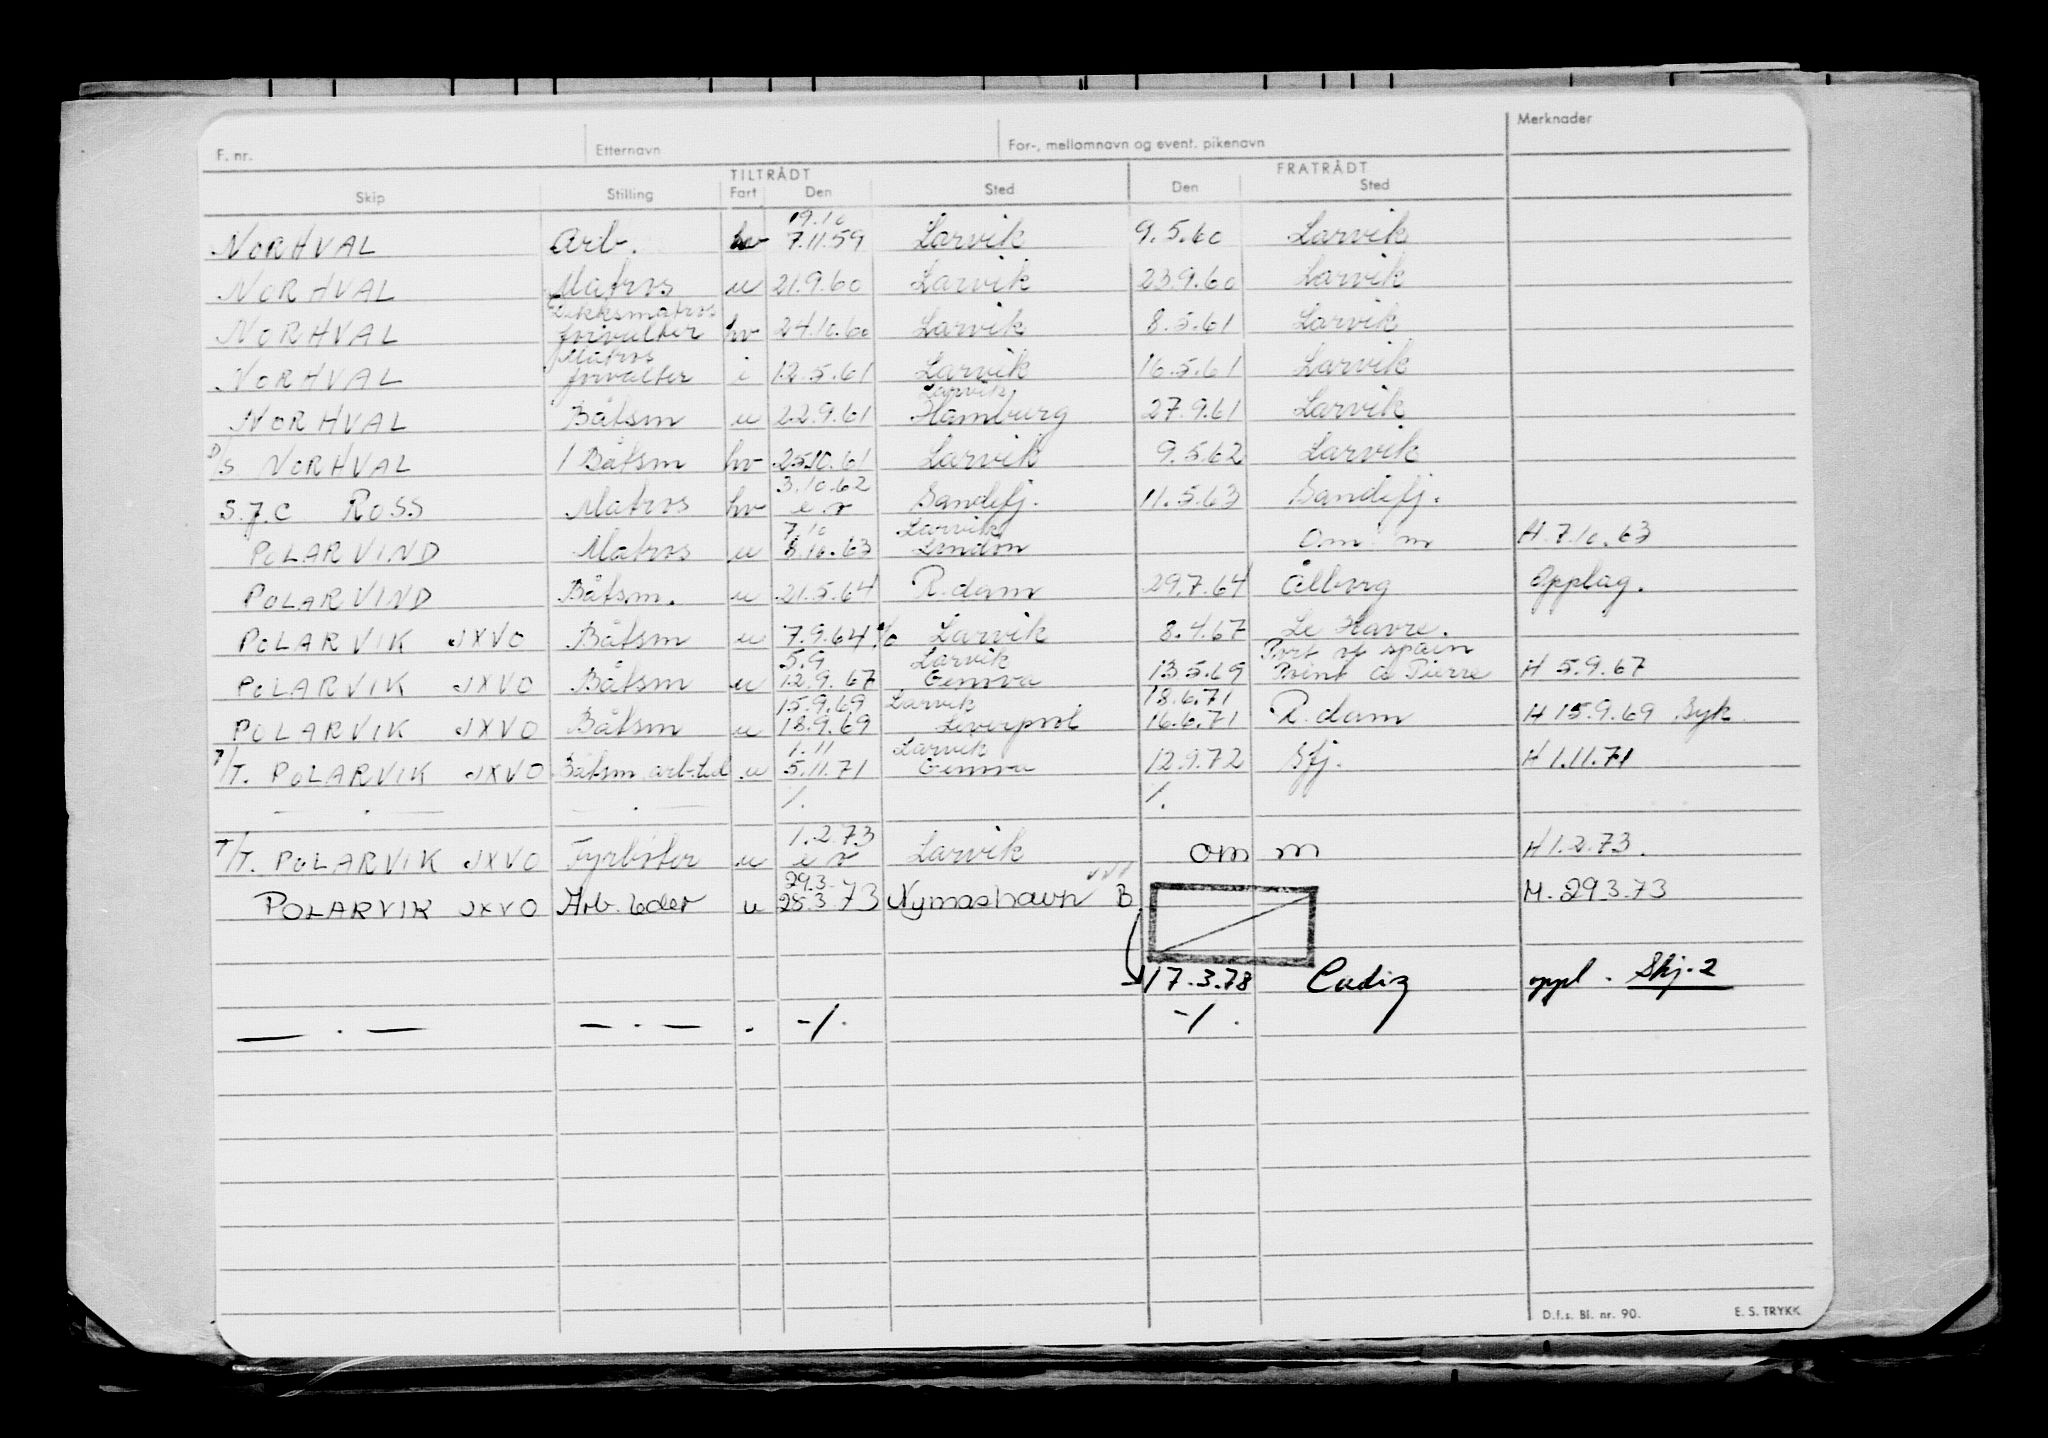 F. nr. Etternavn For-, mellomnavn og event. pikenavn Merknader
TILTRÅDT FRATRÅDT
Skip Stilling Fart Den Sted Den Sted
19.10
NORHVAL Arb. hv 7.11.59 Larvik 9.5.60 Larvik
NORHVAL Matros u 21.9.60 Larvik 23.9.60 Larvik
Dekksmatros
NORHVAL forvalter hv 24.10.60 Larvik 8.5.61 Larvik
Matros
NORHVAL forvalter i 12.5.61 Larvik 16.5.61 Larvik
Larvik
NORHVAL Båtsm u 22.9.61 Hamburg 27.9.61 Larvik
D/S NORHVAL 1 Båtsm hv 25.10.61 Larvik 9.5.62 Larvik
3.10.62
S.J.C ROSS Matros hv e r Sandefj. 11.5.63 Sandefj.
7.10 Larvik
POLARVIND Matros u 8.10.63 London Om m H 7.10.63
POLARVIND Båtsm. u 21.5.64 R.dam 29.7.64 Ålborg Opplag.
POLARVIK JXVO Båtsm u 7.9.64 % Larvik 8.4.67 Le Havre.
5.9 Larvik Port of spain
POLARVIK JXVO Båtsm u 12.9.67 Genova 13.5.69 Point a Pierre H 5.9.67
15.9.69 Larvik 18.6.71
POLARVIK JXVO Båtsm u 18.9.69 Liverpool 16.6.71 R.dam H 15.9.69 Syk
1.11 Larvik
T/T. POLARVIK JXVO Båtsm arb.led u 5.11.71 Genova 12.9.72 Sfj. H 1.11.71
— . — — . — /. /.
1.2.73
T/T. POLARVIK JXVO Fyrbøter u e r Larvik om m H 1.2.73.
29.3
POLARVIK JXVO Arb. leder u 28.3.73 Nymashavn B M. 29.3.73
17.3.78 Cadiz oppl. Skj. 2
— . — — . — . -/. -/.
D.f.s. Bl. nr. 90. E. S. TRYKK